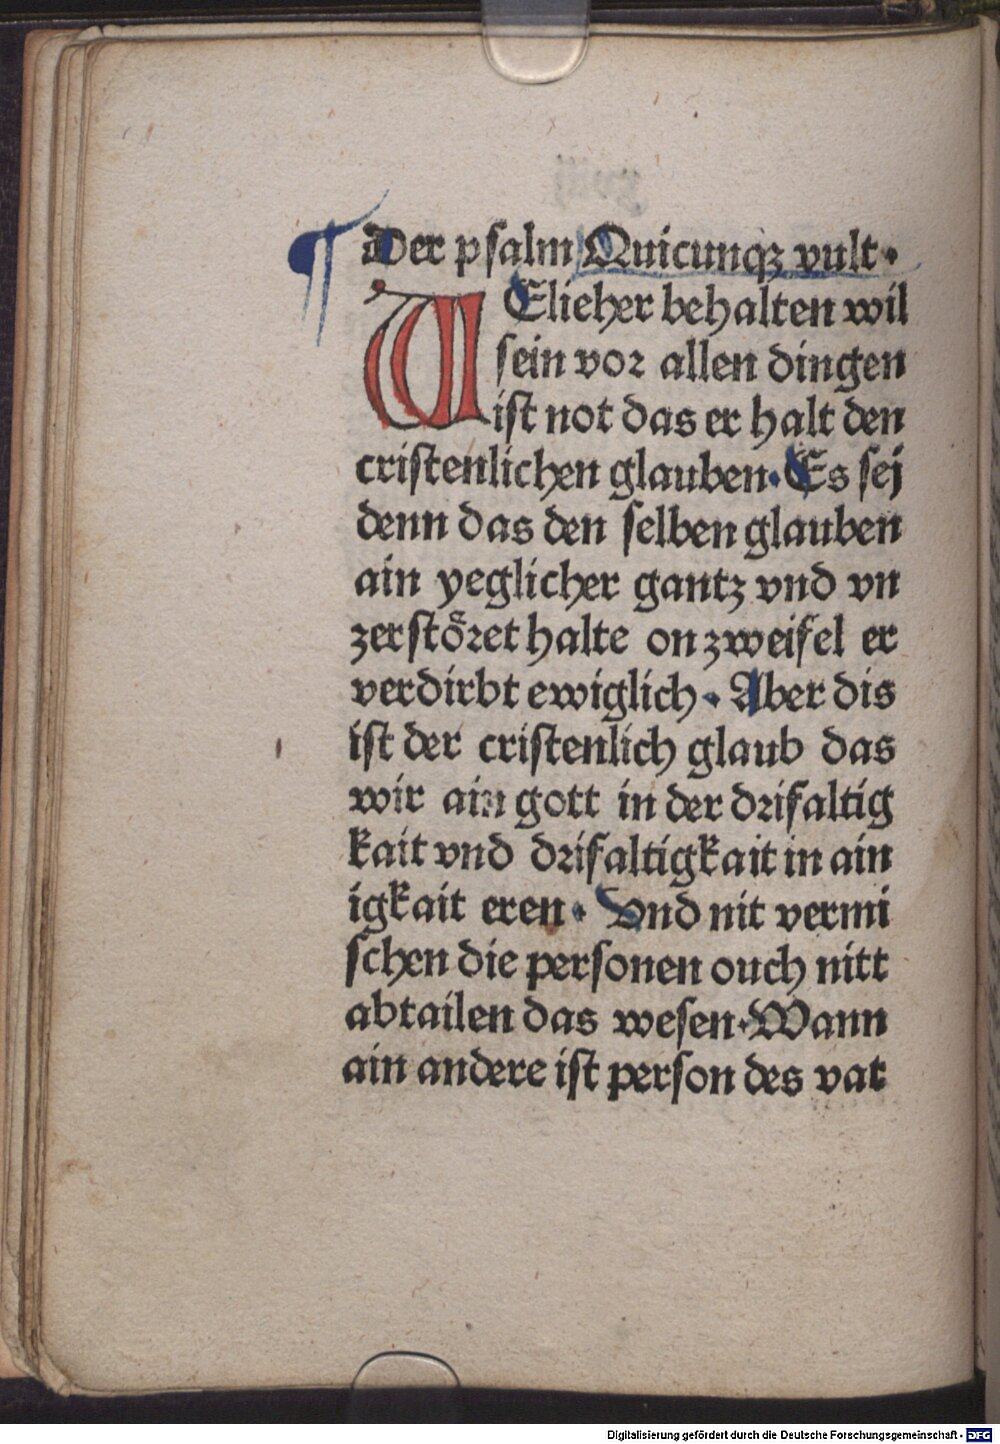 ¶ Der psalm Quicunqꝫ vult·
WElicher behalten wil
sein vor allen dingen
ist not das er halt den
cristenlichen glauben·Es sej
denn das den selben glauben
ain yeglicher gantz vnd vn
zerstöret halte on zweifel er
verdirbt ewiglich· Aber dis
ist der cristenlich glaub das
wir ain gott in der drifaltig
kait vnd drifaltigkait in ain
igkait eren· Vnd nit vermi
schen die personen ouch nitt
abtailen das wesen·Wann
ain andere ist person des vat
Digitalisierung gefördert durch die Deutsche Forschungsgemeinschaft - DFG